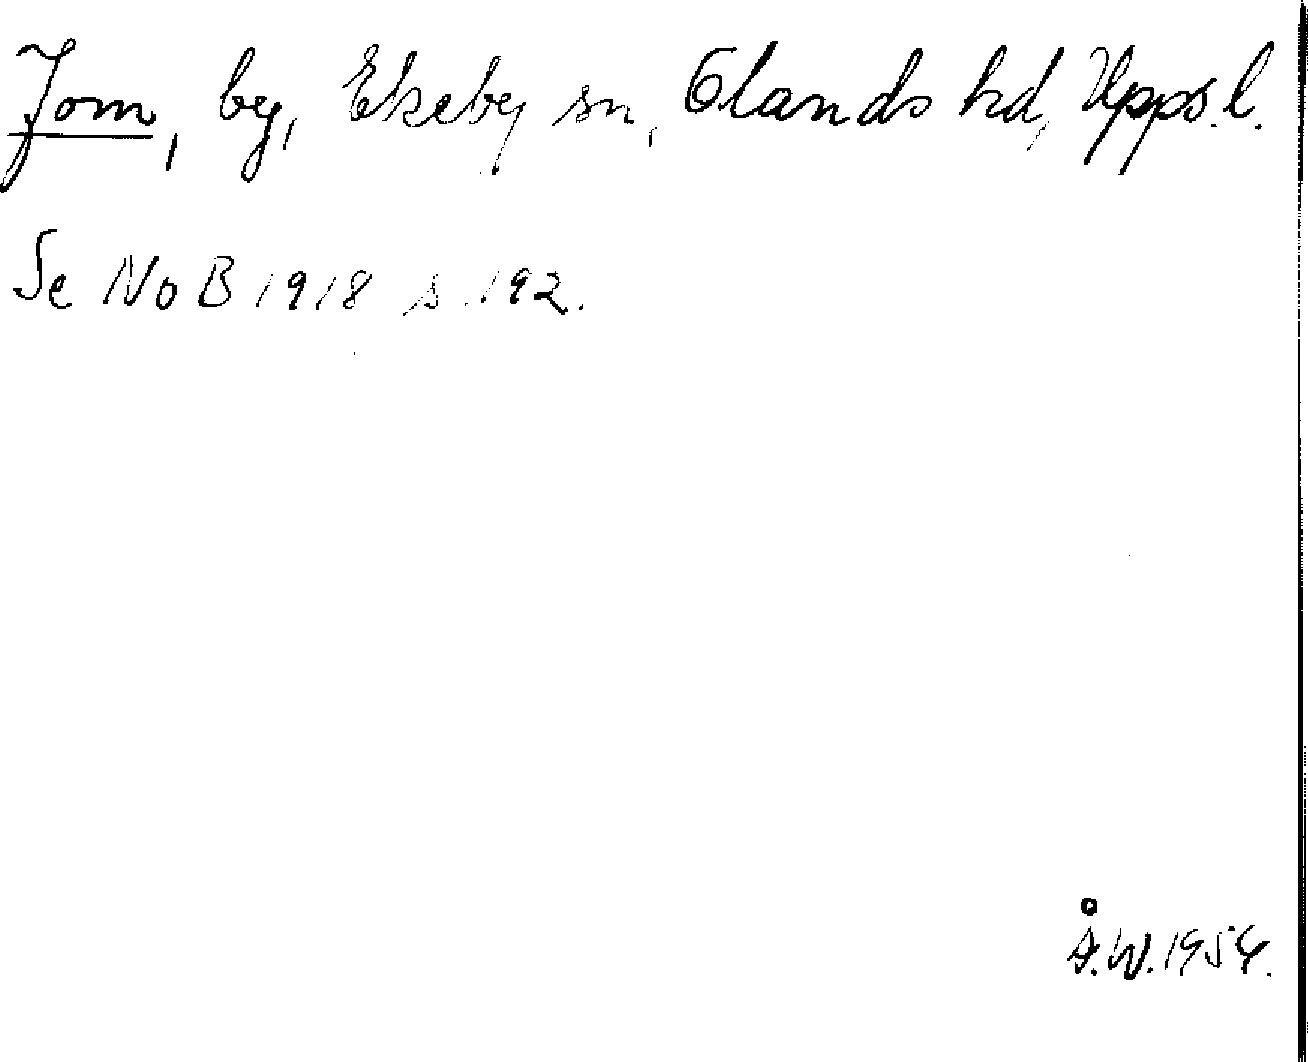 Jom, by, Ekeby sn, Olands hd, Upps. l.
Se NoB 1918 s. 192.
Å.W. 1954.